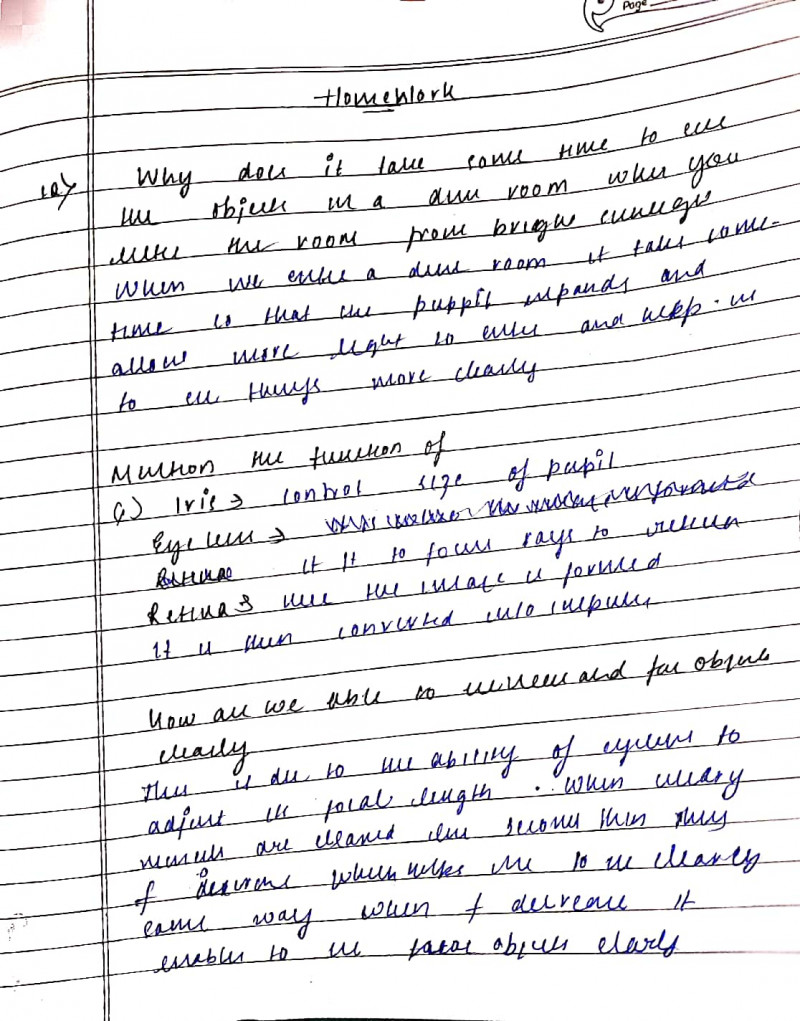 Page
Homework
Why does it take some time to see
the objects in a dim room when you
enter the room from bright sunlight
When we enter a dim room it takes some-
time is that the puppil expands and
allows more light to enter and help us
to see things more clearly
Mention the function of
(i) Iris → control size of pupil
Eye lens →
Retina it is to focus rays to retina
Retina → here the image is formed
It is then converted into impulses
How are we able to see and far objects
clearly
This is due to the ability of eyelens to
adjust its focal length. When ciliary
muscles are relaxed lens become thin thus
f which helps us to see clearly
same way when f decrease it
enables to see objects clearly